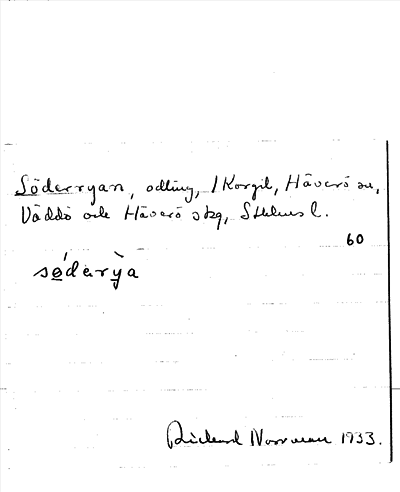 Söderryan, odling, / Korgil, Häverö sn,
Väddö och Häverö skg, Sthlms l.
60
sǿdèrỳa
Rickard Norrman 1933.